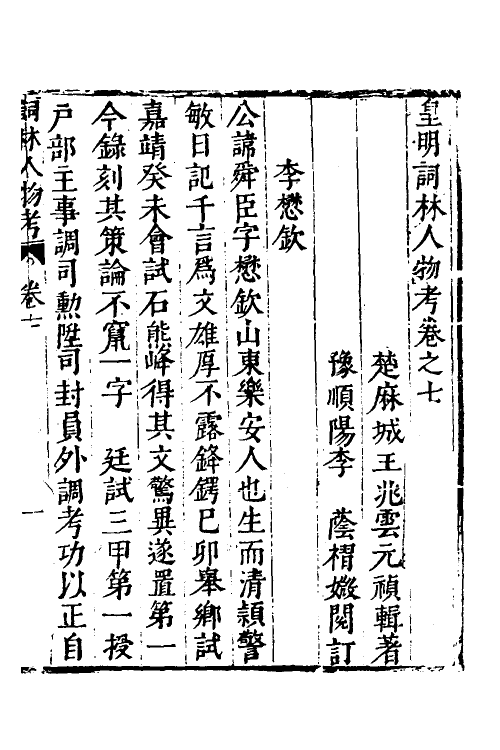 皇明詞林人物考卷之七
楚麻城王兆雲元禎輯著
豫順陽李　蔭襟嫩閱訂
李懋欽
公諱舜臣字懋欽山東樂安人也生而清穎警
敏日記千言爲文雄厚不露鋒鍔己卯舉鄉試
嘉靖癸未會試石熊峰得其文驚異遂置第一
今錄刻其策論不竄一字　廷試三甲第一授
戶部主事調司勳陞司封員外調考功以正自
詞林人物考　卷七　一